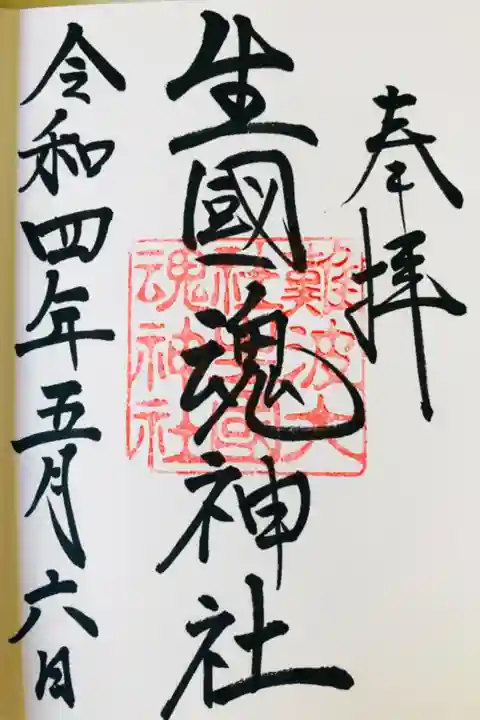 奉拝
生國魂神社
令和四年五月六日
難波大
社生國
魂神社